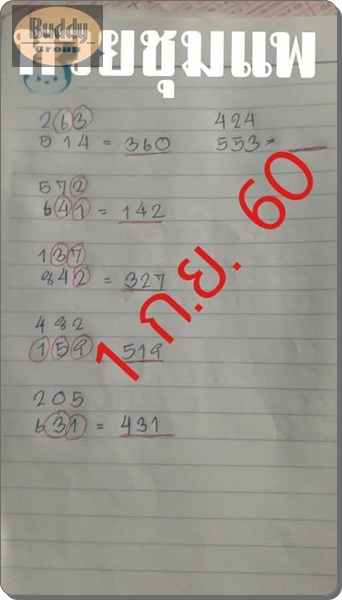 Buddy
Group
หวยชุมแพ
263 424
514 = 360 553 =
572
641 = 142
137
842 = 327
482
159 519
205
631 = 431
1 ก.ย. 60